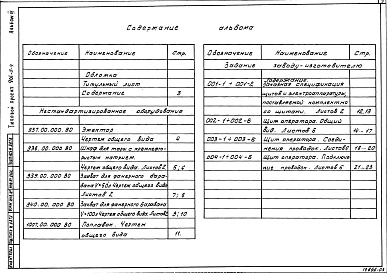 Содержание альбома
Обозначение Наименование Стр.
Обложка
Титульный лист
Содержание 3
Нестандартизированное оборудование
937.00.000 ВО Эжектор
Чертеж общего вида 4
938.00.000 ВО Шкаф для тары с кремнефто-
ристым натрием.
Чертеж общего вида. Листов 2 5; 6
939.00.000 ВО Захват для фанерного бара-
бана V=50л Чертеж общего вида
Листов 2 7; 8
940.00.000 ВО Захват для фанерного барабана
V=100л Чертеж общего вида. Листов 2 9; 10
1007.00.000 ВО Поплавок. Чертеж
общего вида 11
Обозначение Наименование Стр.
Задание заводу-изготовителю
Содержание.
001-1 ÷ 001-2 Заказная спецификация
щитов и электроаппаратуры,
поставляемой комплектно
со щитами. Листов 2 12, 13
002-1 ÷ 002-6 Щит оператора. Общий
вид. Листов 6 14-17
003-1 ÷ 003-6 Щит оператора. Соеди-
нения проводок. Листов 6 18-20
004-1 ÷ 004-6 Щит оператора. Подключе-
ние проводок. Листов 6 21-23
Типовой проект
Альбом